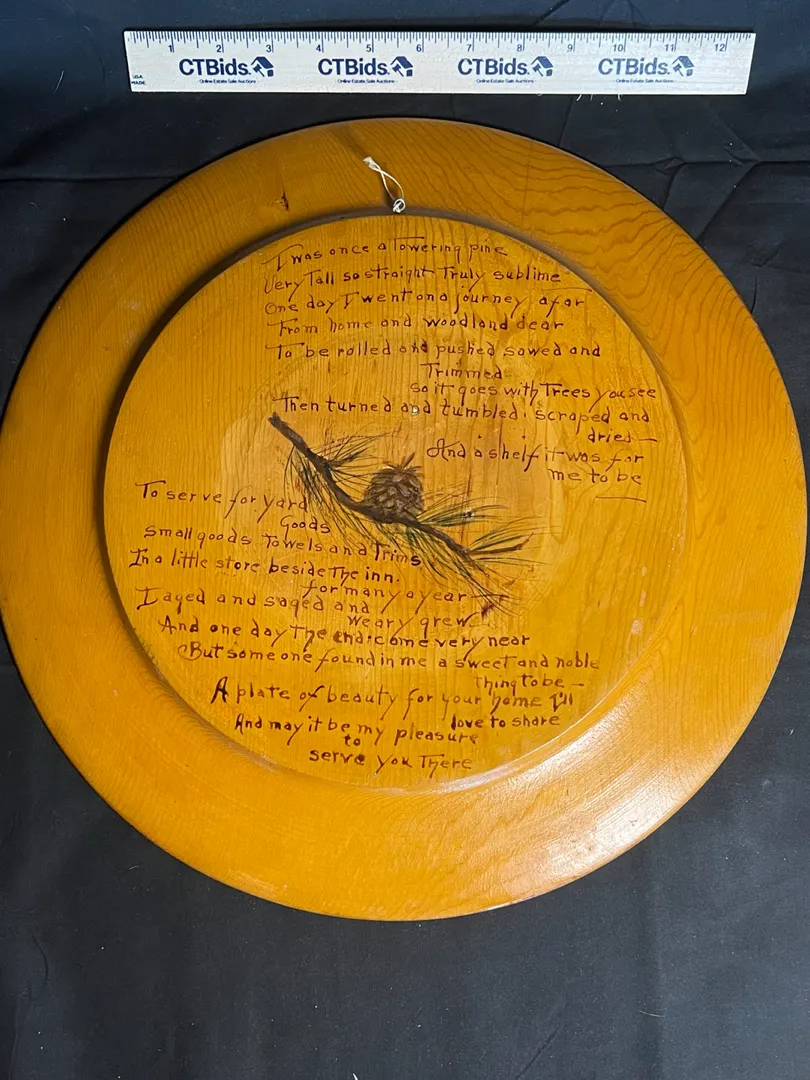 1 2 3 4 5 6 7 8 9 10 11 12
CTBids. CTBids. CTBids. CTBids.
Online Estate Sale Auctions Online Estate Sale Auctions Online Estate Sale Auctions Online Estate Sale Auctions
U.S.A.
MADE
I was once a Towering pine
Very Tall so straight Truly sublime
One day I went on a journey afar
From home and woodland dear
To be rolled and pushed sawed and
Trimmed
so it goes with Trees you see
Then turned and tumbled, scraped and
dried—
And a shelf it was for
me to be
To serve for yard
Goods
small goods Towels and Trims
In a little store beside The inn.
for many a year—
I aged and saged and
weary grew
And one day The end come very near
But some one found in me a sweet and noble
Thing to be—
A plate of beauty for your home I'll
love to share
And may it be my pleasure
to
serve you There